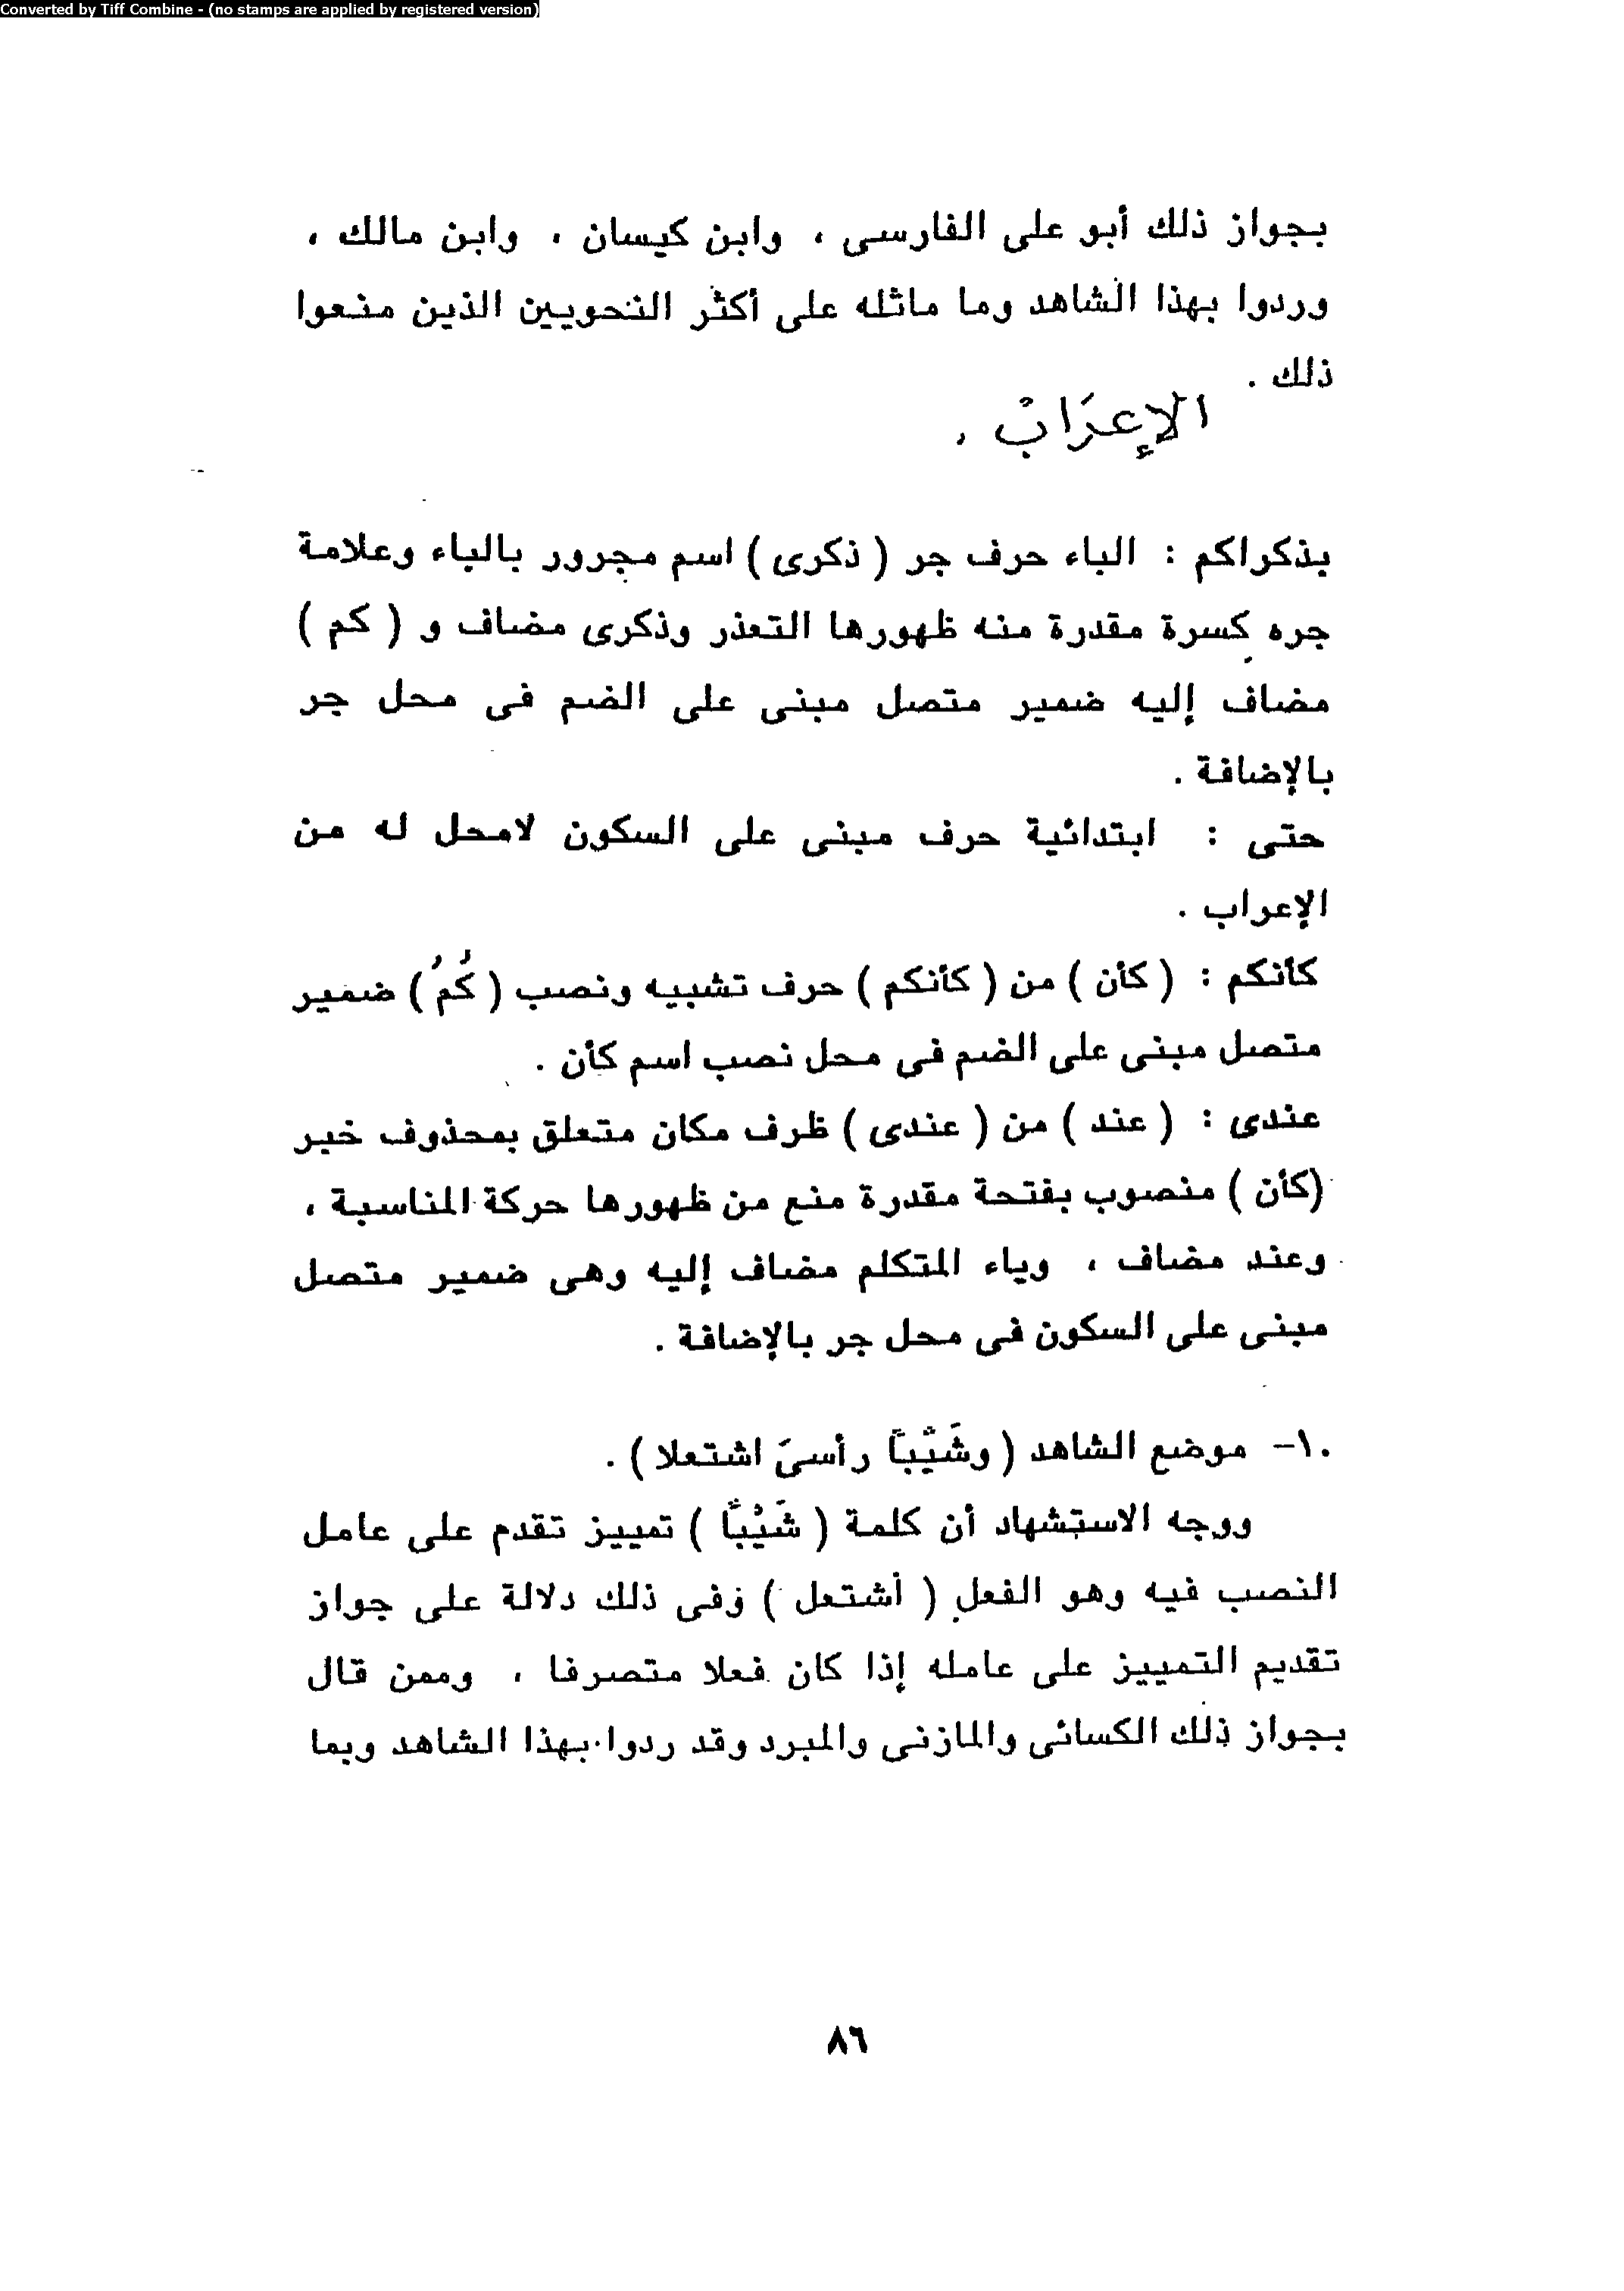 Converted by Tiff Combine - (no stamps are applied by registered version)
بجواز ذلك أبو على الفارسى ، وابن كيسان ، وابن مالك ،
وردوا بهذا الشاهد وما ماثله على أكثر النحويين الذين منعوا
ذلك .
الإعرَابْ .
بذكراكم : الباء حرف جر ( ذكرى ) اسم مجرور بالباء وعلامة
جره كسرة مقدرة منه ظهورها التعذر وذكرى مضاف و ( كم )
مضاف إليه ضمير متصل مبنى على الضم فى محل جر
بالإضافة .
حتى : ابتدائية حرف مبنى على السكون لامحل له من
الإعراب .
كأنكم : ( كأن ) من ( كأنكم ) حرف تشبيه ونصب ( كُمُ ) ضمير
متصل مبنى على الضم فى محل نصب اسم كأن .
عندى : ( عند ) من ( عندى ) ظرف مكان متعلق بمحذوف خبر
(كأن ) منصوب بفتحة مقدرة منع من ظهورها حركة المناسبة ،
وعند مضاف ، وياء المتكلم مضاف إليه وهى ضمير متصل
مبنى على السكون فى محل جر بالإضافة .
١٠- موضع الشاهد ( وشَيْباً رأسىَ اشتعلا ) .
ووجه الاستشهاد أن كلمة ( شَيْباً ) تمييز تقدم على عامل
النصب فيه وهو الفعل ( أشتعل ) وفى ذلك دلالة على جواز
تقديم التمييز على عامله إذا كان فعلا متصرفا ، وممن قال
بجواز ذلك الكسائى والمازنى والمبرد وقد ردوا بهذا الشاهد وبما
٨٦